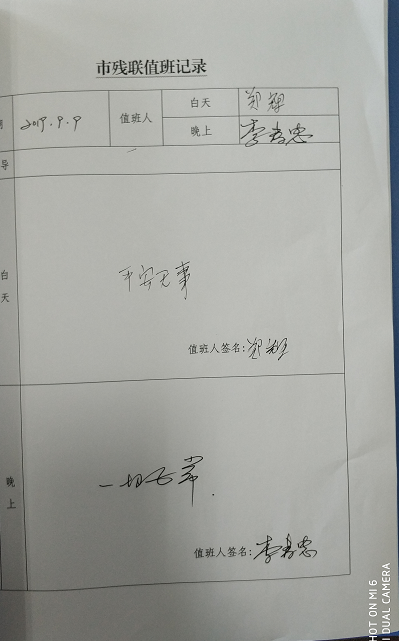 市残联值班记录
期 2019.9.9 值班人 白天 郑翔
晚上 李寿忠
导
白天
平安无事
值班人签名:郑翔
晚上
一切正常.
值班人签名:李寿忠
SHOT ON MI 6
MI DUAL CAMERA